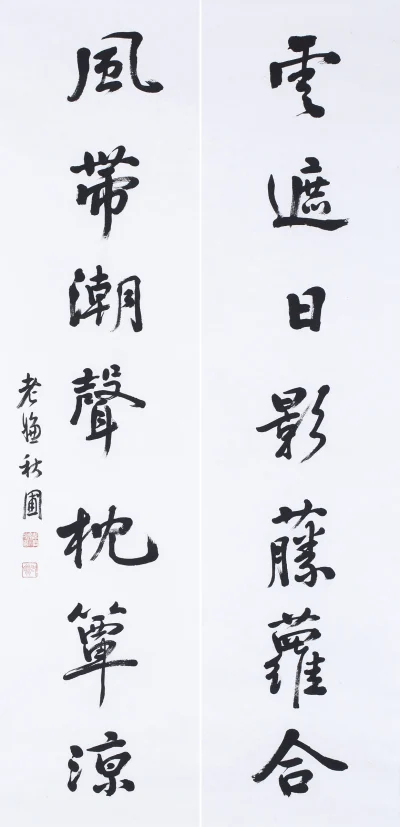 雲遮日影藤蘿合
風帶潮聲枕簟涼
老㛴秋圃